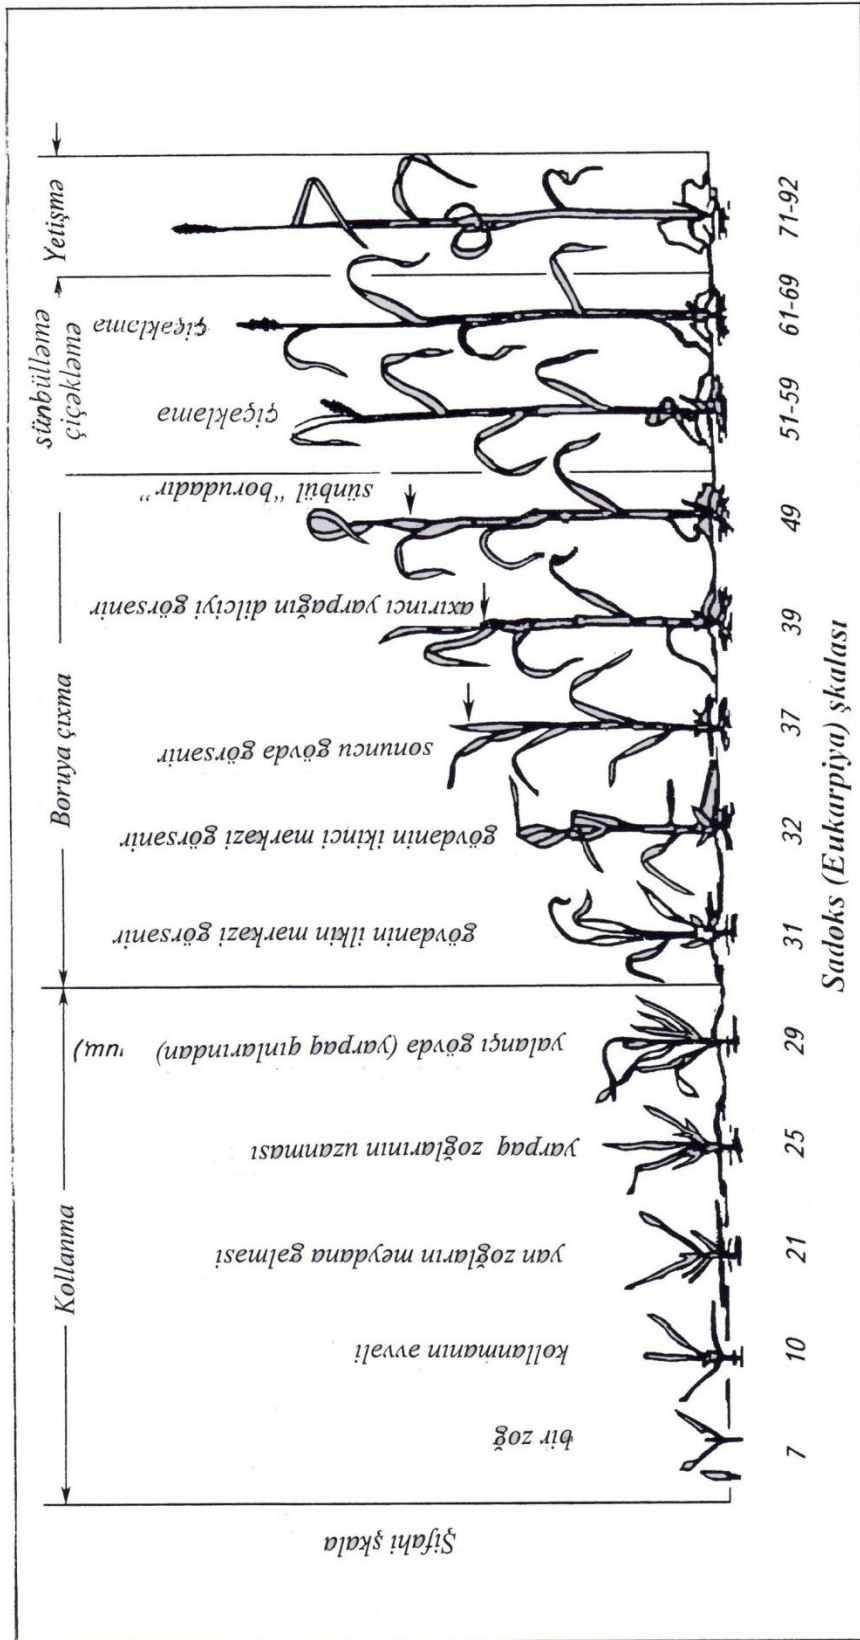 Kollanma
Boruya çıxma
sünbülləmə
çiçəkləmə
Yetişmə
Şifahi şkala
bir zoğ
kollanmanın əvvəli
yan zoğların meydana gəlməsi
yarpaq zoğlarının uzanması
yalançı gövdə (yarpaq qınlarından)
gövdənin ilkin mərkəzi görsənir
gövdənin ikinci mərkəzi görsənir
sonuncu gövdə görsənir
axırıncı yarpağın dilciyi görsənir
sünbül "borudadır"
çiçəkləmə
çiçəkləmə
7 10 21 25 29 31 32 37 39 49 51-59 61-69 71-92
Sadoks (Eukarpiya) şkalası